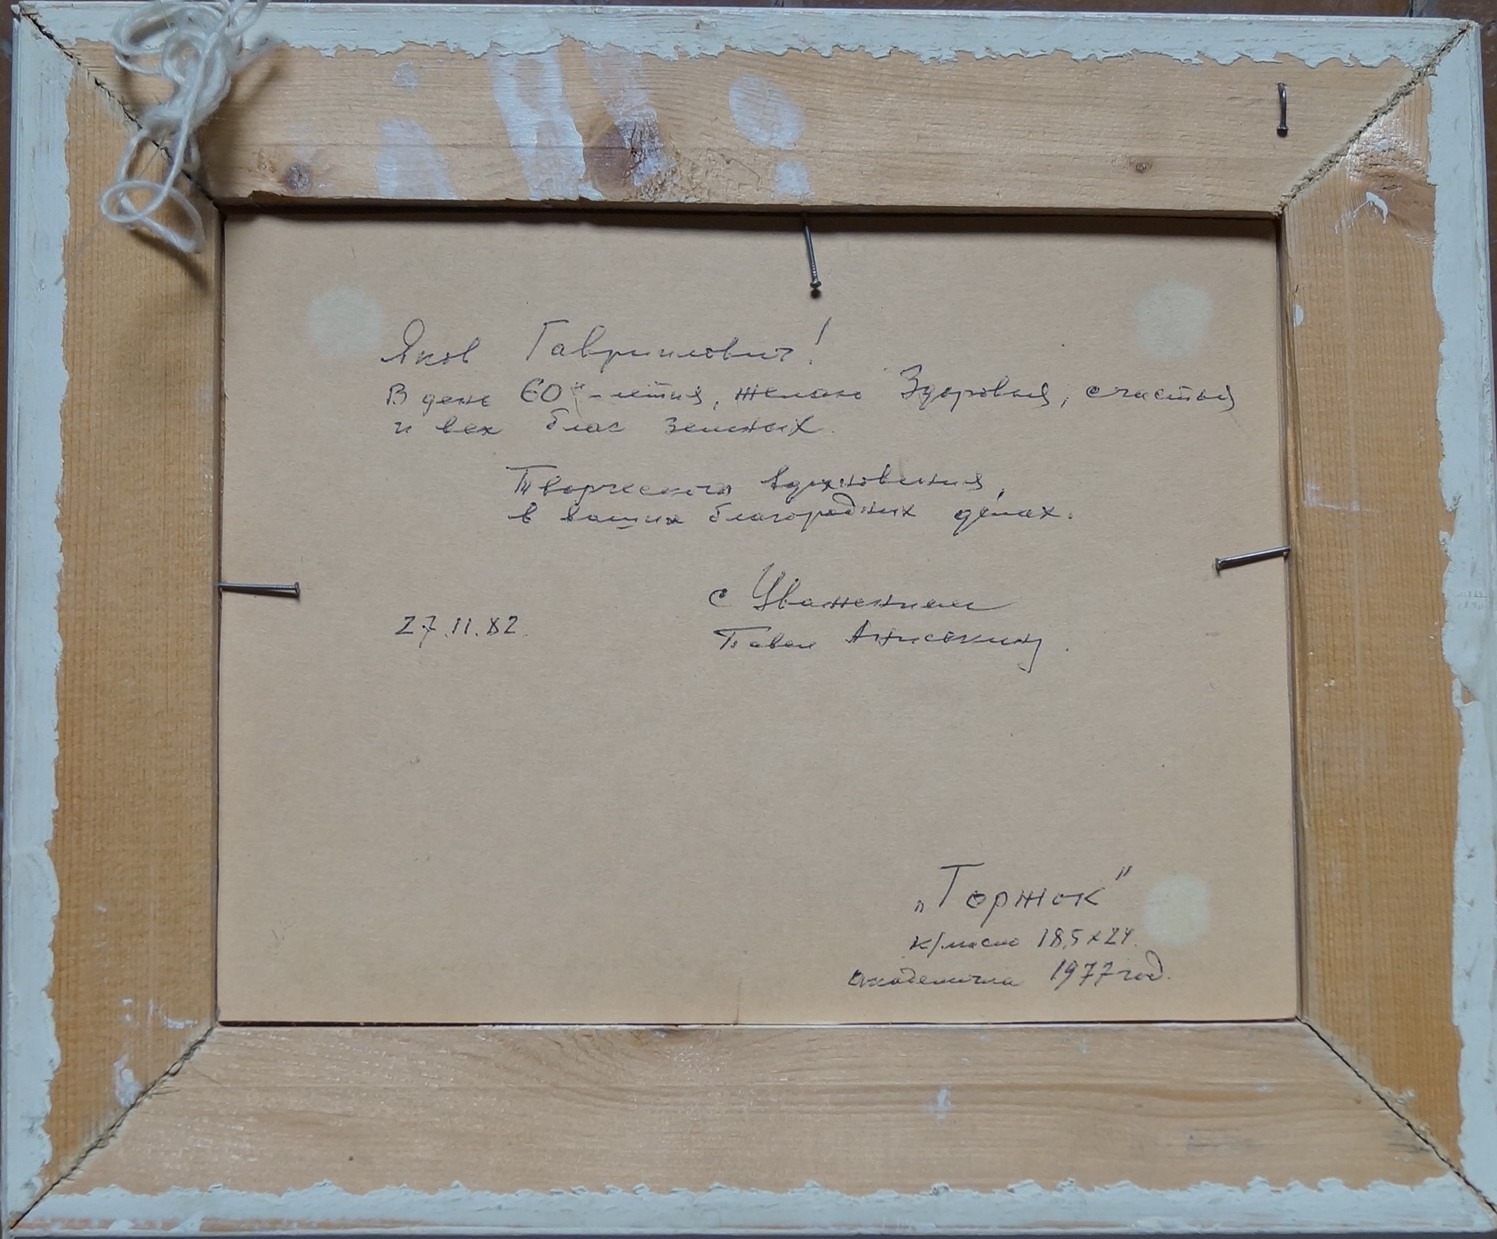 Яков Гаврилович!
В день 60и-летия, желаю Здоровья, счастья
и всех благ земных.
Творческого вдохновения,
в ваших благородных делах.
с Уважением
27.11.82. Павел Анисекин.
„Торжок"
к/масло 18,5х24.
Академичка 1977 год.